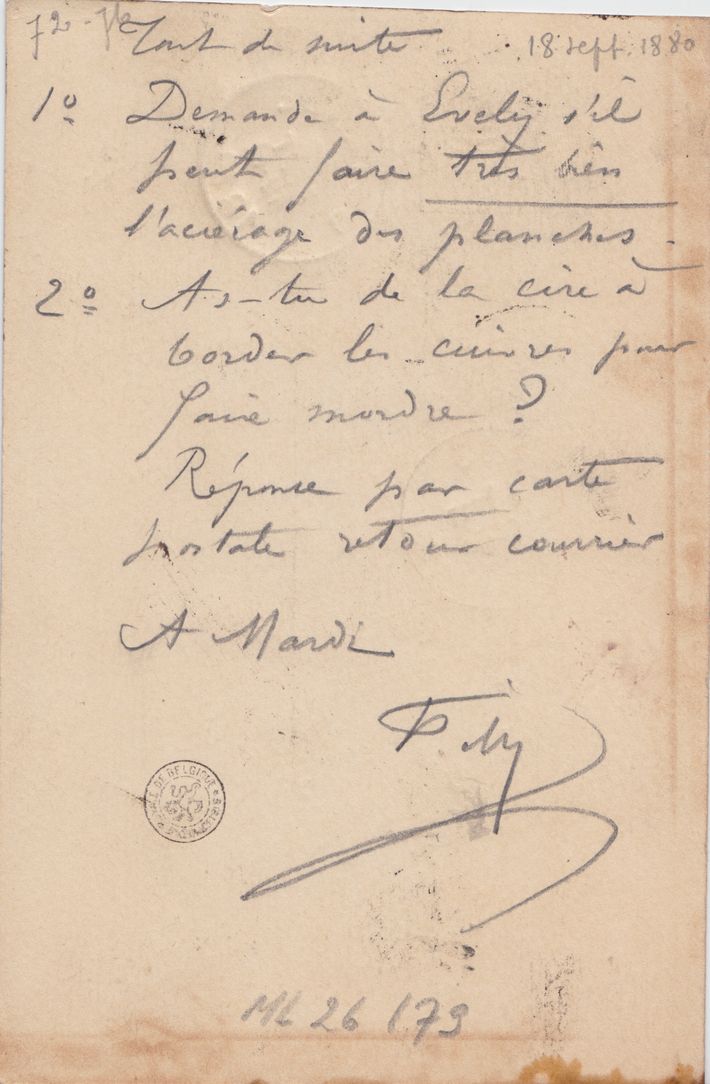 72- 
Tout de suite 18 sept. 1880
1º Demande à Evely s'il
peut faire très bien
l'aciérage des planches.
2º As-tu de la cire à
border les cuivres pour
faire mordre ?
Réponse par carte
postale retour courrier
A Mardi
BELGIQUE
ML 26 / 79